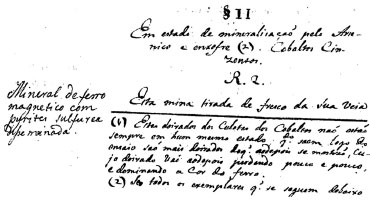 § II
Em estado de mineralisação pelo Arse-
nico e enxofre (2). Cobaltos Cin-
zentos.
R. 2.
Mineral de ferro
magnetico com
pyrites sulfurea
disseminada.
Esta mina tirada de fresco da sua Veia
(1) Estes doirados dos Cobaltos naõ estaõ
sempre em hum mesmo estado, q. saem logo do
saõ mais doirados deq. aodepois se mostraõ, Cu-
jo doirado Vai aodepois perdendo pouco e pouco,
e dominando a Cor do ferro.
(2) São todos os exemplares q. se seguem debaixo